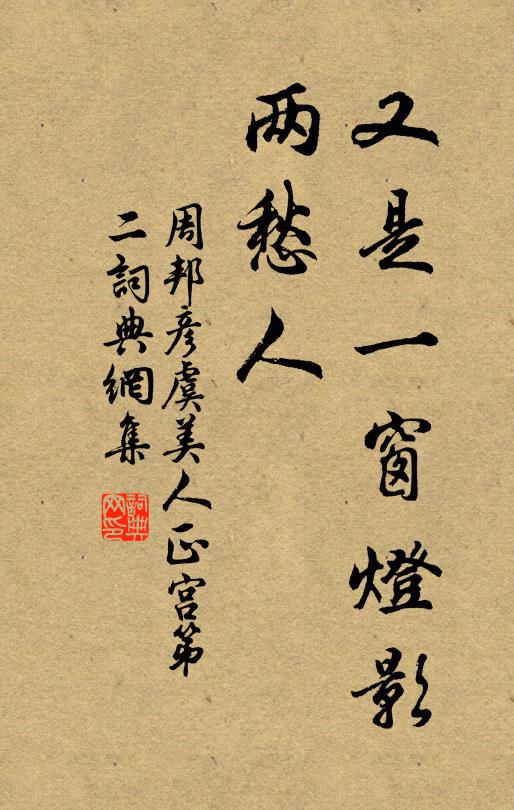 又是一窗燈影
两愁人
周邦彦虞美人正宫第
二詞典網集
詞典
网印